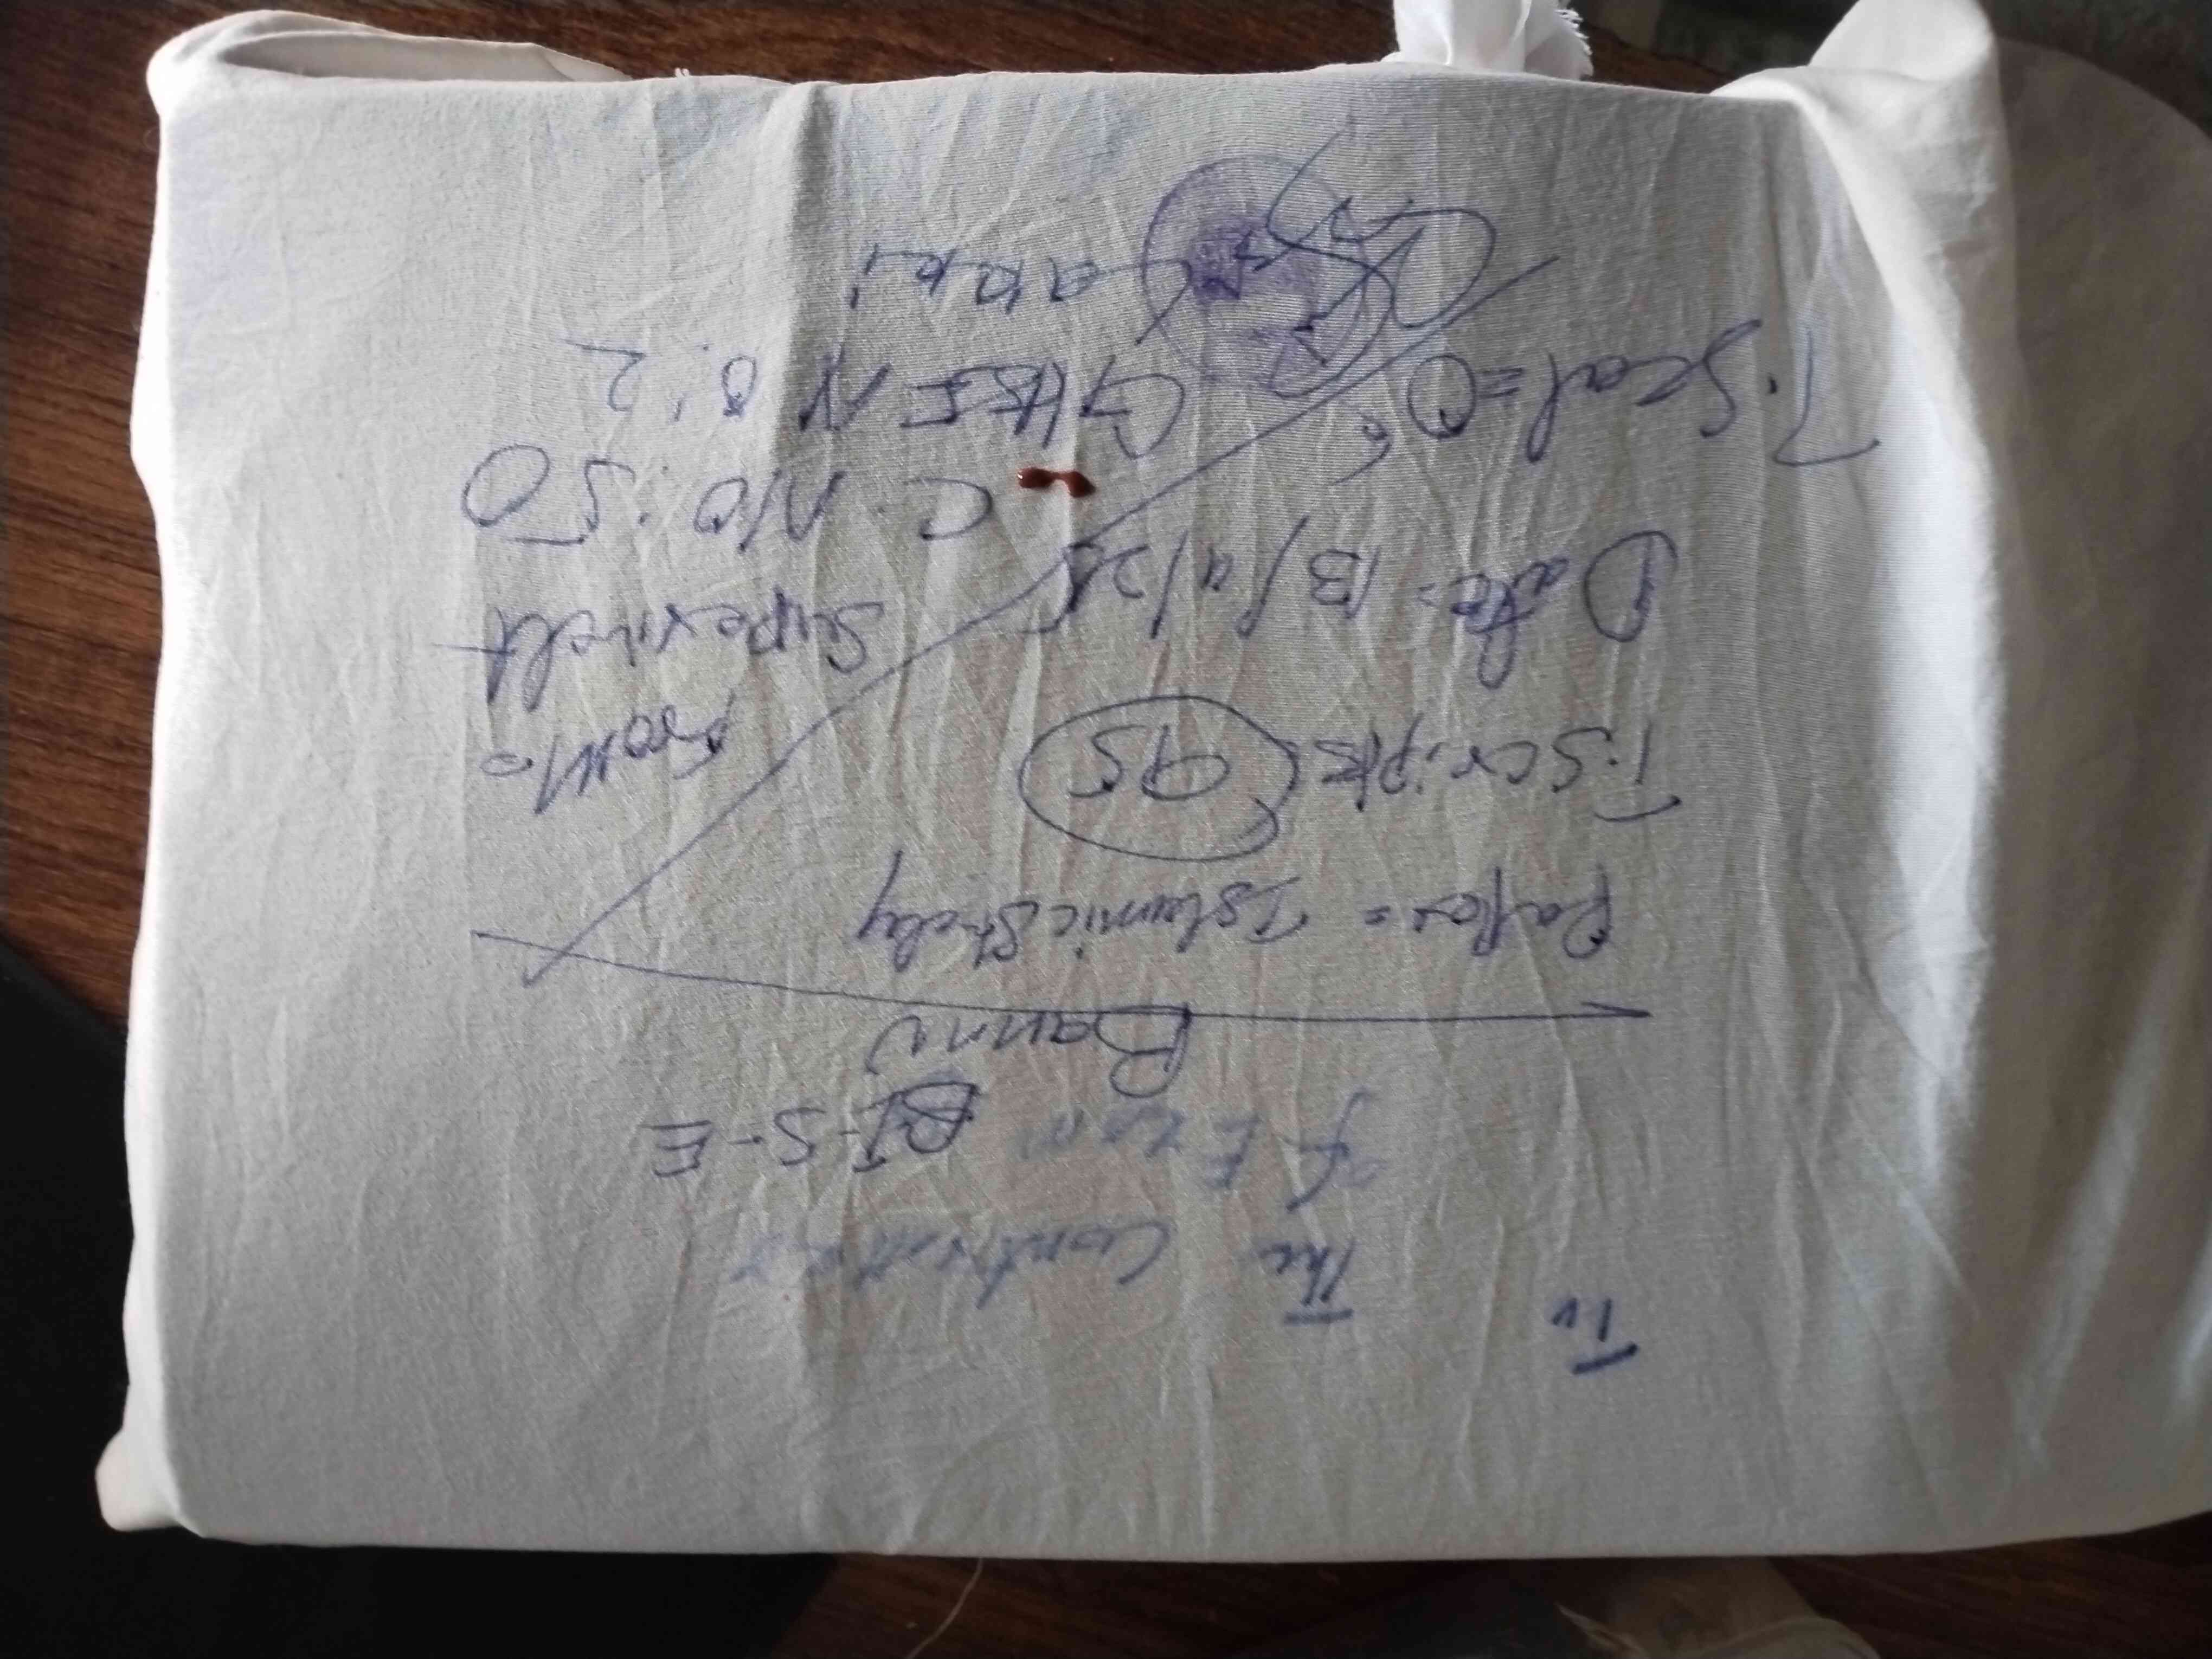 To
The Controller
of Exam B-I-S-E
Bannu
Paper = Islamic Study
T.Scripts 95
Date = 13/4/25
T.Seal = 06
From =
Superintd
C No: 50
GHSS No: 2
Lakki